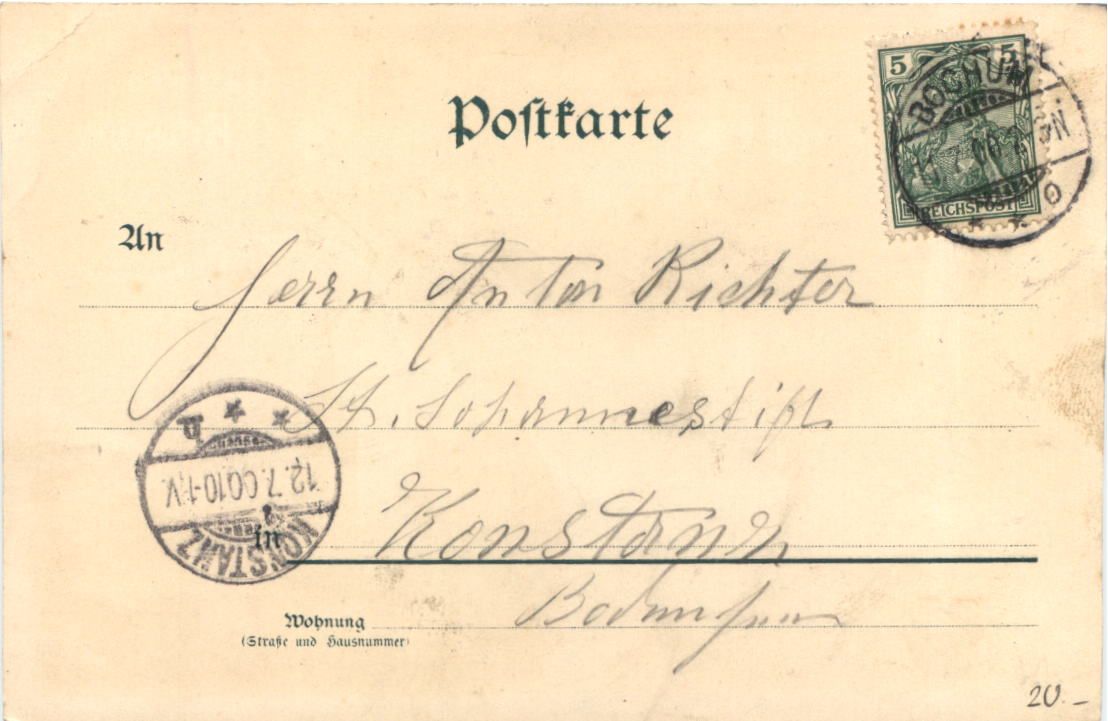 Postkarte
5 5
REICHSPOST
BOCHUM
An
Herrn Anton Richter
St. Johannesstift
KONSTANZ
12.7.00.10-11V.
in
Konstanz
Bodensee
Wohnung
(Straße und Hausnummer)
20.-